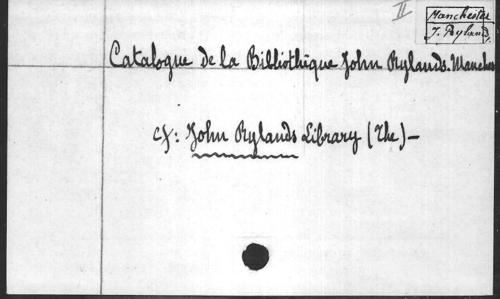 II
Manchester
J. Rylands
Catalogue de la Bibliothèque John Rylands. Manches
cf: John Rylands Library (The) —